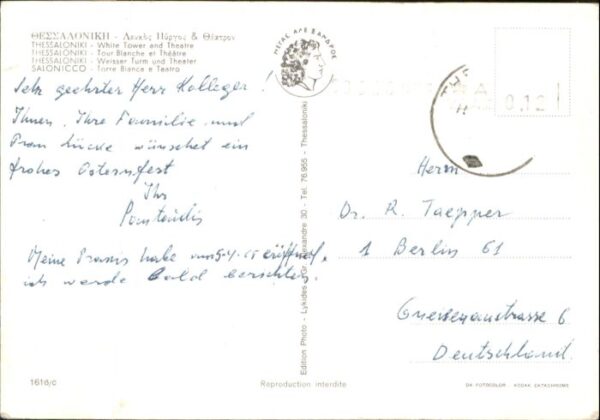 ΘΕΣΣΑΛΟΝΙΚΗ - Λευκὸς Πύργος & Θέατρον
THESSALONIKI - White Tower and Theatre
THESSALONIKI - Tour Blanche et Théâtre
THESSALONIKI - Weisser Turm und Theater
SALONICCO - Torre Bianca e Teatro
ΜΕΓΑΣ ΑΛΕΞΑΝΔΡΟΣ
0.12
Sehr geehrter Herr Kollege!
Ihnen, Ihre Familie und
Frau Lücke wünschet ein
frohes Osternfest
Ihr
Meine Praxis habe eröffnet,
ich werde bald berichten.
Edition Photo - Lykides - Gr. Alexandre 30 - Tel. 76.955 - Thessaloniki
Herrn
Dr. R. Taepper
1 Berlin 61
Gneisenaustrasse 6
Deutschland.
1616/c
Reproduction interdite
DK FOTOCOLOR - KODAK EKTACHROME